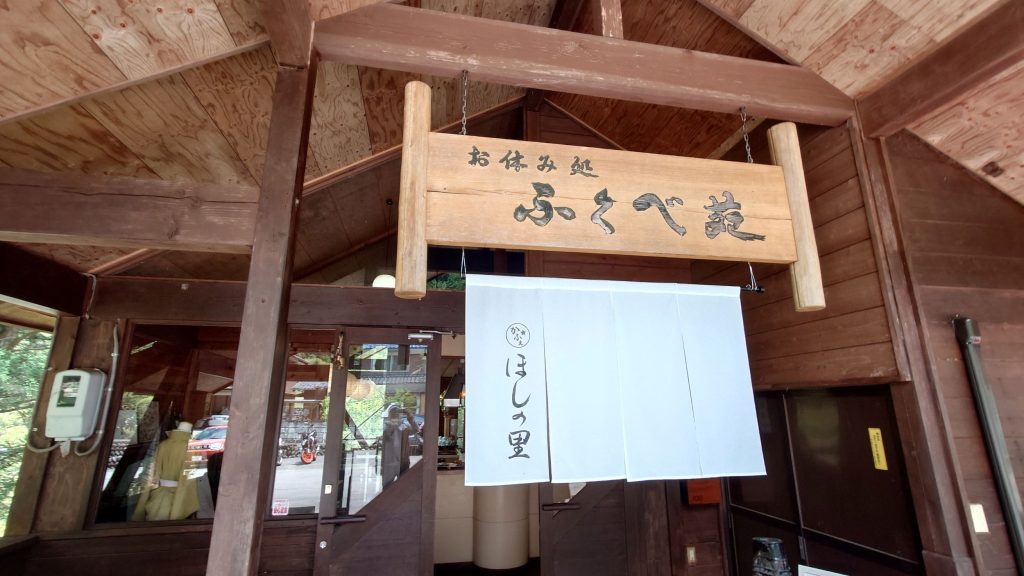 お休み処
ふくべ苑
ほしの里